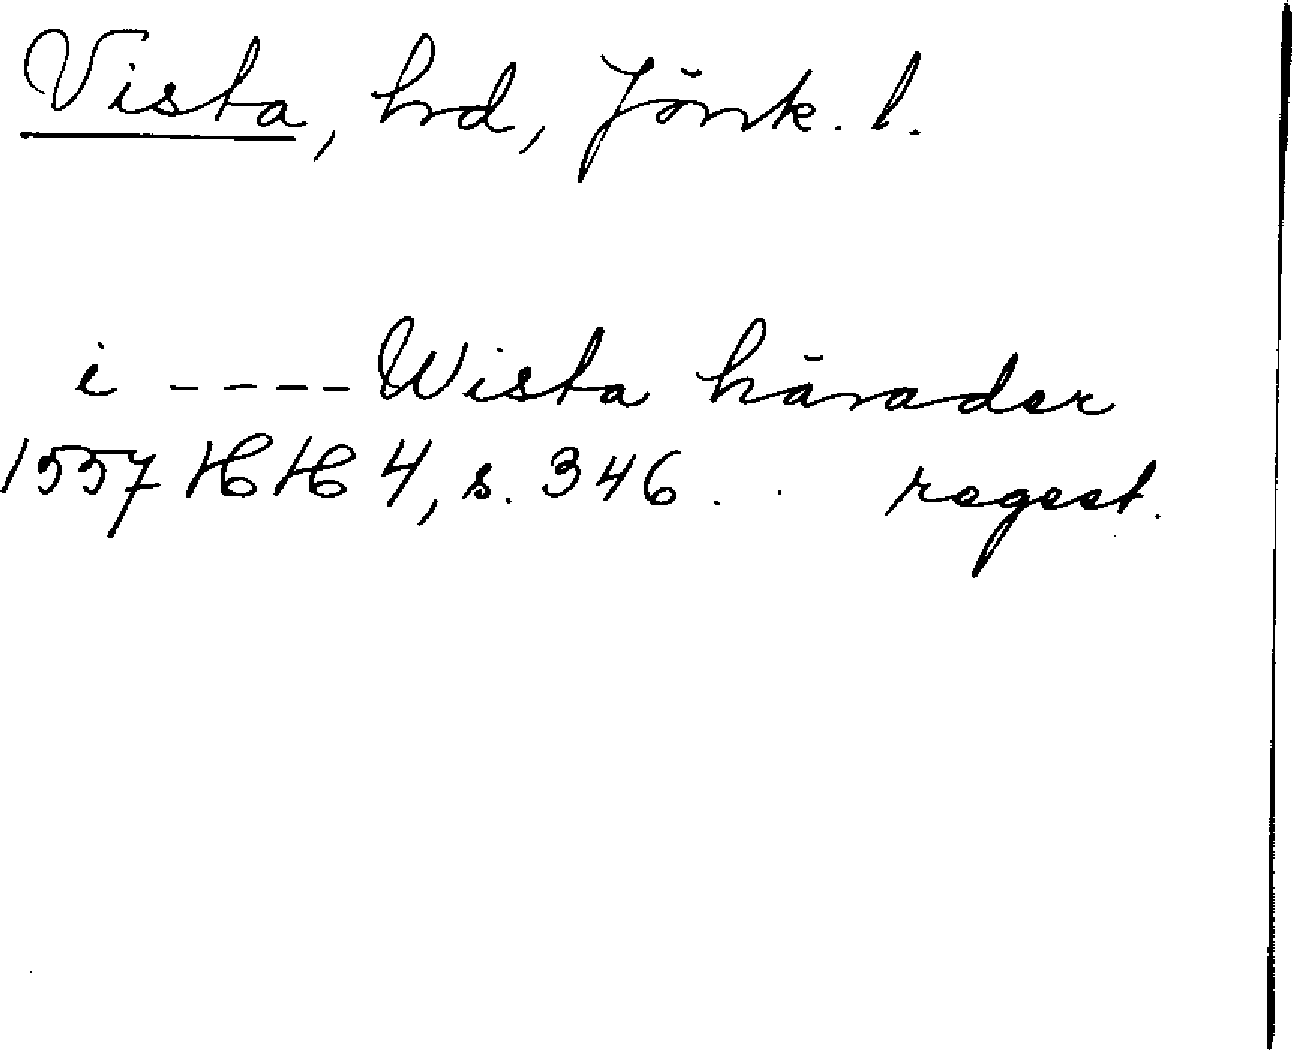 Vista, hd, Jönk. l.
i ---- Wista härader
1557 HH 4, s. 346. regest.